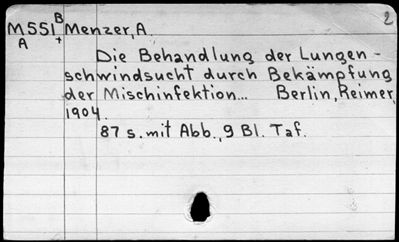 2
M551 B Menzer, A.
A +
Die Behandlung der Lungen-
schwindsucht durch Bekämpfung
der Mischinfektion... Berlin, Reimer,
1904.
87 s. mit Abb., 9 Bl. Taf.